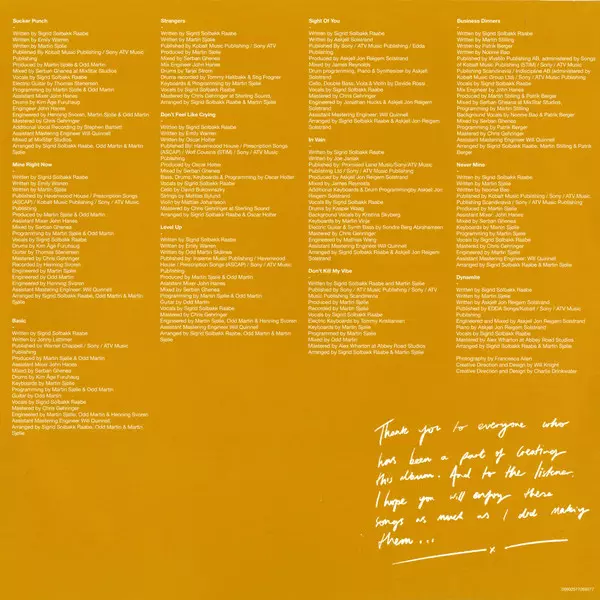 Sucker Punch
-
Written by Sigrid Solbakk Raabe
Written by Emily Warren
Written by Martin Sjølie
Published By Kobalt Music Publishing / Sony ATV
Music Publishing
Produced by Martin Sjølie & Odd Martin
Mixed by Serban Ghenea at MixStar Studios
Vocals by Sigrid Solbakk Raabe
Electric Guitar by Thomas Steinersen
Programming by Martin Sjølie & Odd Martin
Assistant Mixer John Hanes
Drums by Kim Åge Furuhaug
Engineer John Hanes
Engineered by Henning Svoren, Martin Sjølie & Odd Martin
Mastered by Chris Gehringer
Additional Vocal Recording by Stephen Bartlett
Assistant Mastering Engineer Will Quinnell
Mixed at MixStar Studios
Arranged by Sigrid Solbakk Raabe, Odd Martin & Martin Sjølie

Mine Right Now
-
Written by Sigrid Solbakk Raabe
Written by Emily Warren
Written by Martin Sjølie
Published by Havenwood House / Prescription Songs
(ASCAP) / Kobalt Music Publishing / Sony / ATV Music
Publishing
Produced by Martin Sjølie & Odd Martin
Assistant Mixer John Hanes
Mixed by Serban Ghenea
Programming by Martin Sjølie & Odd Martin
Vocals by Sigrid Solbakk Raabe
Drums by Kim Åge Furuhaug
Guitar by Thomas Steinersen
Mastered by Chris Gehringer
Recorded by Henning Svoren
Engineered by Martin Sjølie
Engineered by Odd Martin
Engineered by Henning Svoren
Assistant Mastering Engineer, Will Quinnell
Arranged by Sigrid Solbakk Raabe, Odd Martin & Martin
Sjølie

Basic
-
Written by Sigrid Solbakk Raabe
Written by Jonny Lattimer
Published by Warner Chappell / Sony / ATV Music
Publishing
Produced by Martin Sjølie & Odd Martin
Assistant Mixer John Hanes
Mixed by Serban Ghenea
Drums by Kim Åge Furuhaug
Keyboards by Martin Sjølie
Programming by Martin Sjølie & Odd Martin
Guitar by Odd Martin
Vocals by Sigrid Solbakk Raabe
Mastered by Chris Gehringer
Engineered by Martin Sjølie, Odd Martin & Henning Svoren
Assistant Mastering Engineer Will Quinnell
Arranged by Sigrid Solbakk Raabe, Odd Martin & Martin
Sjølie

Strangers
-
Written by Sigrid Solbakk Raabe
Written by Martin Sjølie
Published by Kobalt Music Publishing / Sony ATV
Produced by Martin Sjølie
Mixed by Serban Ghenea
Mix Engineer John Hanes
Drums by Tarjei Strøm
Drums recorded by Tommy Hellbakk & Stig Fragner
Keyboards & Programming by Martin Sjølie
Vocals by Sigrid Solbakk Raabe
Mastered by Chris Gehringer
Arranged by Sigrid Solbakk Raabe & Martin Sjølie

Don't Feel Like Crying
-
Written by Sigrid Solbakk Raabe
Written by Emily Warren
Written by Oscar Holter
Published By: Havenwood House / Prescription Songs
(ASCAP) / Wolf Cousins (STIM) / Sony / ATV Music
Publishing
Produced by Oscar Holter
Mixed by Serban Ghenea
Bass, Drums, Keyboards & Programming by Oscar Holter
Vocals by Sigrid Solbakk Raabe
Cello by David Bukovinszky
Strings by Mattias Bylund
Violin by Mattias Johansson
Mastered by Chris Gehringer at Sterling Sound,
Arranged by Sigrid Solbakk Raabe & Oscar Holter

Level Up
-
Written by Sigrid Solbakk Raabe
Written by Emily Warren
Written by Odd Martin Skålnes
Published by: Waterfall Music Publishing / Havenwood
House / Prescription Songs (ASCAP) / Sony / ATV Music
Publishing
Produced by Martin Sjølie & Odd Martin
Mixed by Serban Ghenea
Programming by Martin Sjølie & Odd Martin
Guitar by Odd Martin
Vocals by Sigrid Solbakk Raabe
Mastered by Chris Gehringer
Engineered by Martin Sjølie, Odd Martin & Henning Svoren
Assistant Mastering Engineer Will Quinnell
Arranged by Sigrid Solbakk Raabe, Odd Martin & Martin
Sjølie

Sight Of You
-
Written by Sigrid Solbakk Raabe
Written by Askjell Solstrand
Published By Sony / ATV Music Publishing / Edda
Publishing
Produced by Askjell Jon Reigem Solstrand
Mixed by James Reynolds
Drum programming, Piano & Synthesizer by Askjell
Solstrand
Cello, Double Bass, Viola & Violin by Davide Rossi
Vocals by Sigrid Solbakk Raabe
Mastered by Chris Gehringer
Engineered by Jonathan Hucks & Askjell Jon Reigem
Solstrand
Assistant Mastering Engineer Will Quinnell
Arranged by Sigrid Solbakk Raabe & Askjell Jon Reigem
Solstrand

In Vain
-
Written by Sigrid Solbakk Raabe
Written by Joe Janiak
Published by: Promised Land Music/Sony/ATV Music
Publishing Ltd / Sony / ATV Music Publishing
Produced by Askjell Jon Reigem Solstrand
Mixed by James Reynolds
Additional Keyboards & Drum Programming by Askjell Jon
Reigem Solstrand
Vocals By Sigrid Solbakk Raabe
Drums by Kasper Waag
Background Vocals by Kristina Skuberg
Keyboards by Martin Vinje
Electric Guitar & Synth Bass by Sondre Berg Abrahamsen
Mastered by Chris Gehringer
Engineered by Mathias Wang
Assistant Mastering Engineer Will Quinnell
Arranged by Sigrid Solbakk Raabe & Askjell Jon
Reigem Solstrand

Don't Kill My Vibe
-
Written by Sigrid Solbakk Raabe and Martin Sjølie
Published by Sony / ATV Music Publishing / Sony / ATV
Music Publishing Scandinavia
Produced by Martin Sjølie
Recorded by Martin Sjølie
Vocals by Sigrid Solbakk Raabe
Electric Keyboards by Tommy Kristiansen
Keyboards by Martin Sjølie
Programmed by Martin Sjølie
Mixed by Odd Martin
Mastered by Alex Wharton at Abbey Road Studios
Arranged by Sigrid Solbakk Raabe and Martin Sjølie

Business Dinners
-
Written by Sigrid Solbakk Raabe
Written by Martin Stilling
Written by Patrik Berger
Written by Noonie Bao
Published by Waatibi Publishing AB, administered by Songs
of Kobalt Music Publishing (STIM) / Sony / ATV Music
Publishing Scandinavia / Indiscipline AB (administered by
Kobalt Music Group Ltd) / Sony / ATV Music Publishing
Vocals by Sigrid Solbakk Raabe
Mix Engineer by John Hanes
Produced by Martin Stilling & Patrik Berger
Mixed by Serban Ghenea at MixStar Studios.
Programming by Martin Stilling
Background Vocals by Noonie Bao & Patrik Berger
Mixed by Serban Ghenea
Programming by Patrik Berger
Mastered by Chris Gehringer
Assistant Mastering Engineer Will Quinnell
Arranged by Sigrid Solbakk Raabe, Martin Stilling & Patrik
Berger

Never Mine
-
Written by Sigrid Solbakk Raabe
Written by Martin Sjølie
Written by Noonie Bao
Published by Kobalt Music Publishing / Sony / ATV Music
Publishing Scandinavia / Sony / ATV Music Publishing
Produced by Martin Sjølie
Mixed by Serban Ghenea
Assistant Mixer John Hanes
Keyboards by Martin Sjølie
Programming by Martin Sjølie
Vocals by Sigrid Solbakk Raabe
Mastered by Chris Gehringer
Engineered by Martin Sjølie
Assistant Mastering Engineer, Will Quinnell
Arranged by Sigrid Solbakk Raabe & Martin Sjølie

Dynamite
-
Written by Sigrid Solbakk Raabe
Written by Martin Sjølie
Written by Askjell Jon Reigem Solstrand
Published by EDDA Songs/Kobalt / Sony / ATV Music
Publishing
Engineered and Mixed by Askjell Jon Reigem Solstrand
Piano by Askjell Jon Reigem Solstrand
Vocals by Sigrid Solbakk Raabe
Mastered by Alex Wharton at Abbey Road Studios
Arranged by Sigrid Solbakk Raabe & Martin Sjølie

Photography by Francesca Allen
Creative Direction and Design by Will Knight
Creative Direction and Design by Charlie Drinkwater

Thank you to everyone who
has been a part of creating
this album. And to the listener.
I hope you will enjoy these
songs as much as I did making
them...
x